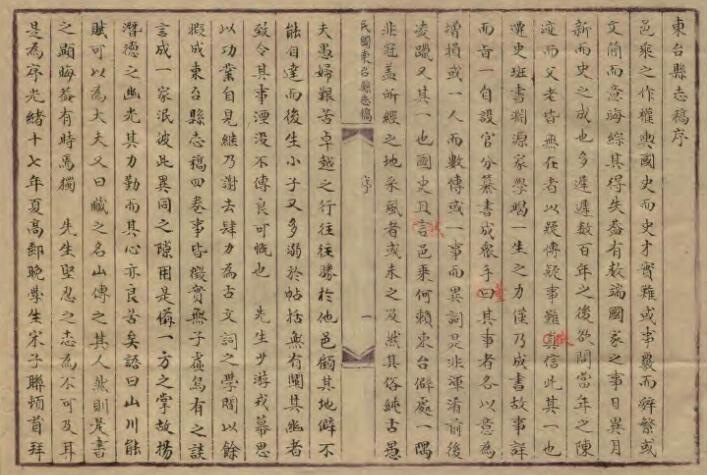 東台縣志稿序
邑乘之作權輿國史而史才實難或事嚴而辭繁或
文簡而意晦綜其得失蓋有數端國家之事日異月
新而史之成也多遲遲數百年之後欲問當年之陳
迹而父老皆無在者以疑傳疑事難真信此其一也
遷史班書淵源家學竭一生之力僅乃成書故事詳
而旨一自設官分纂書成眾手曰其事者各以意為
增損或一人而數傳或一事而異詞是非渾淆前後
凌躐又其一也國史且言邑乘何賴東台僻處一隅
非冠蓋所經之地采風者或未之及然其俗純古愚
民國東台縣志稿 序 一
夫愚婦艱苦卓越之行往往勝於他邑顧其地僻不
能自達而後生小子又多溺於帖括無有闡其幽者
致令其事湮沒不傳良可慨也 先生少游戎幕思
以功業自見繼乃謝去肆力為古文詞之學間以餘
暇成東台縣志稿四卷事皆徵實無子虛烏有之談
言成一家泯彼此異同之隙用是備一方之掌故揚
潛德之幽光其力勤而其心亦良苦矣語曰山川能
賦可以為大夫又曰藏之名山傳之其人然則是書
之顯晦蓋有時焉獨 先生堅忍之志為不可及耳
是為序光緒十七年夏高郵晚學生宋子聯頓首拜